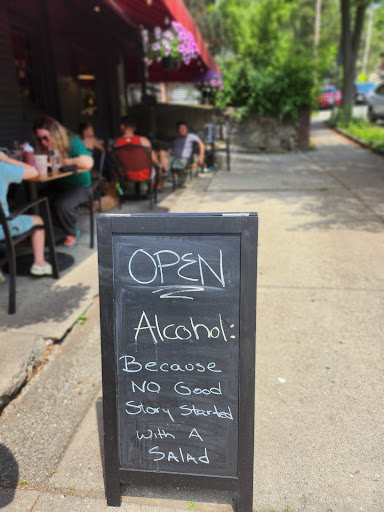 OPEN
Alcohol:
Because
NO Good
Story Started
With A
SALAD